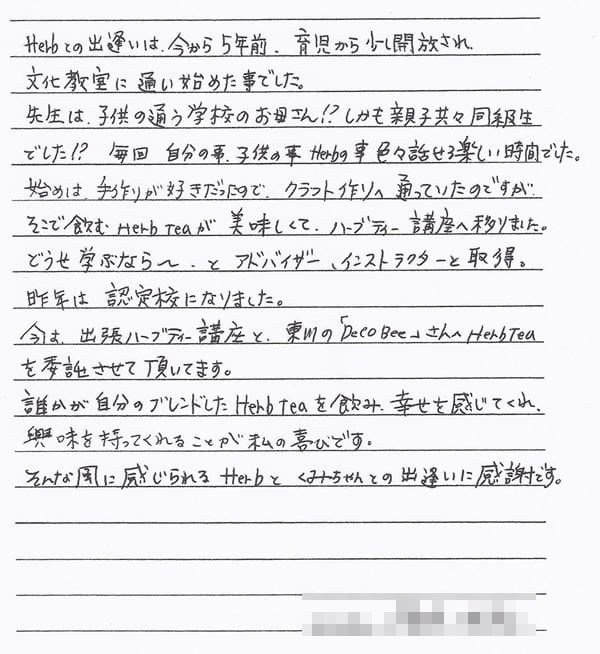 Herbとの出逢いは、今から5年前、育児から少し開放され、
文化教室に通い始めた事でした。
先生は、子供の通う学校のお母さん!? しかも親子共々同級生
でした!? 毎回 自分の事、子供の事 Herbの事 色々話せる楽しい時間でした。
始めは、手作りが好きだったので、クラフト作りへ通っていたのですが、
そこで飲むHerb Teaが美味しくて、ハーブティー講座へ移りました。
どうせ学ぶなら〜、とアドバイザー、インストラクターと取得。
昨年は認定校になりました。
今は、出張ハーブティー講座と、東川の「Deco Bee」さんへHerbTea
を委託させて頂いてます。
誰かが自分のブレンドしたHerb teaを飲み、幸せを感じてくれ、
興味を持ってくれることが私の喜びです。
そんな風に感じられるHerbとくみちゃんとの出逢いに感謝です。